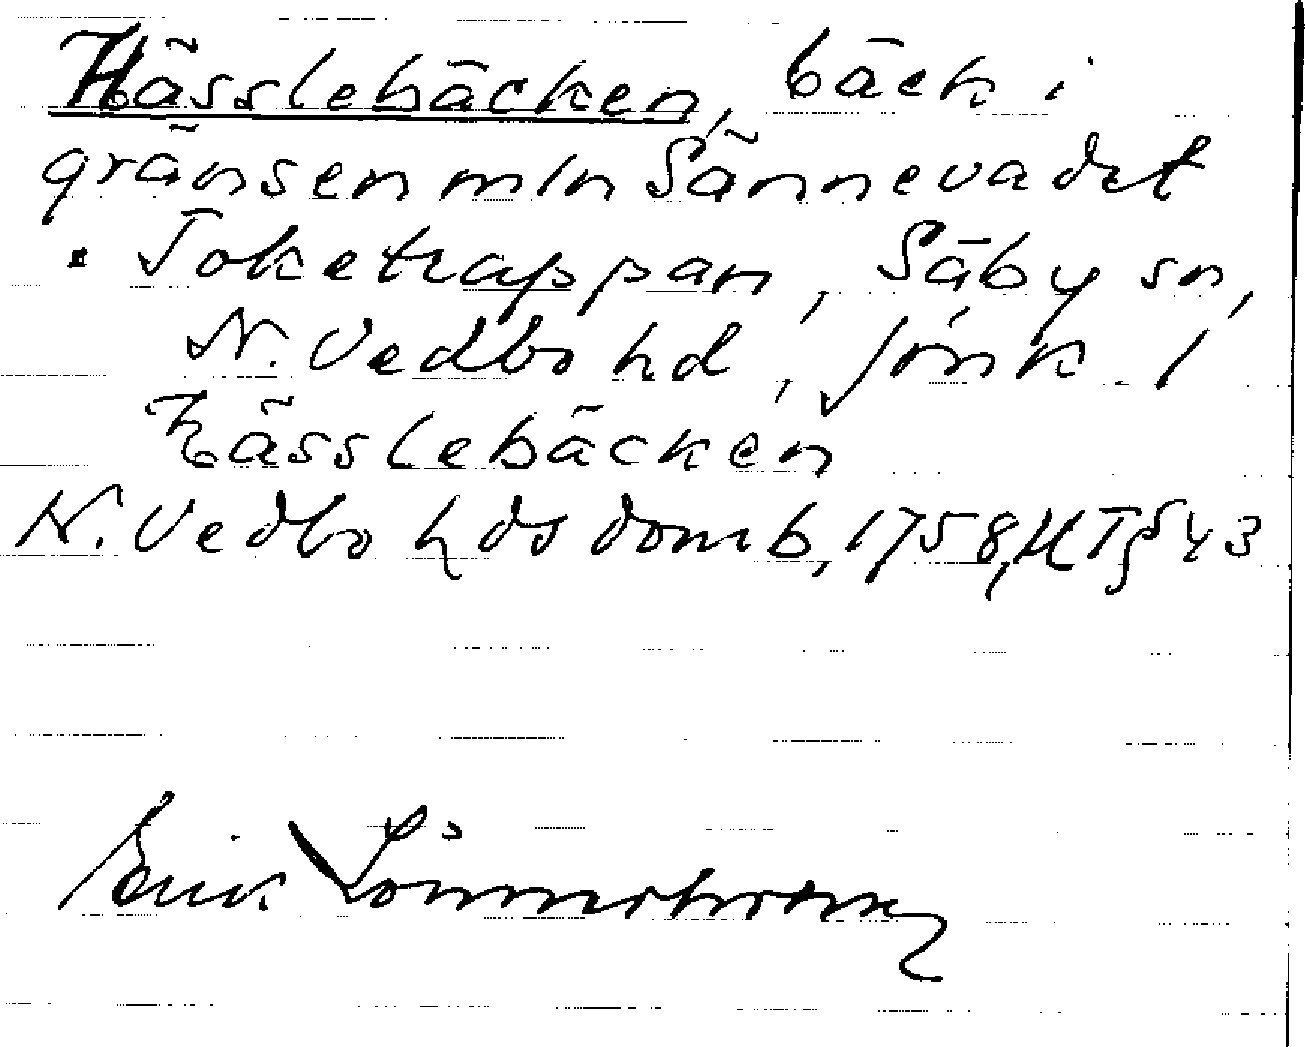 Hässlebäcken, bäck i
gränsen mln Sännevadet
. Toketrappan, Säby sn,
N. Vedbo hd, Jönk l
Hässlebäcken
N. Vedbo hds domb, 1758, HT § 43
Erik